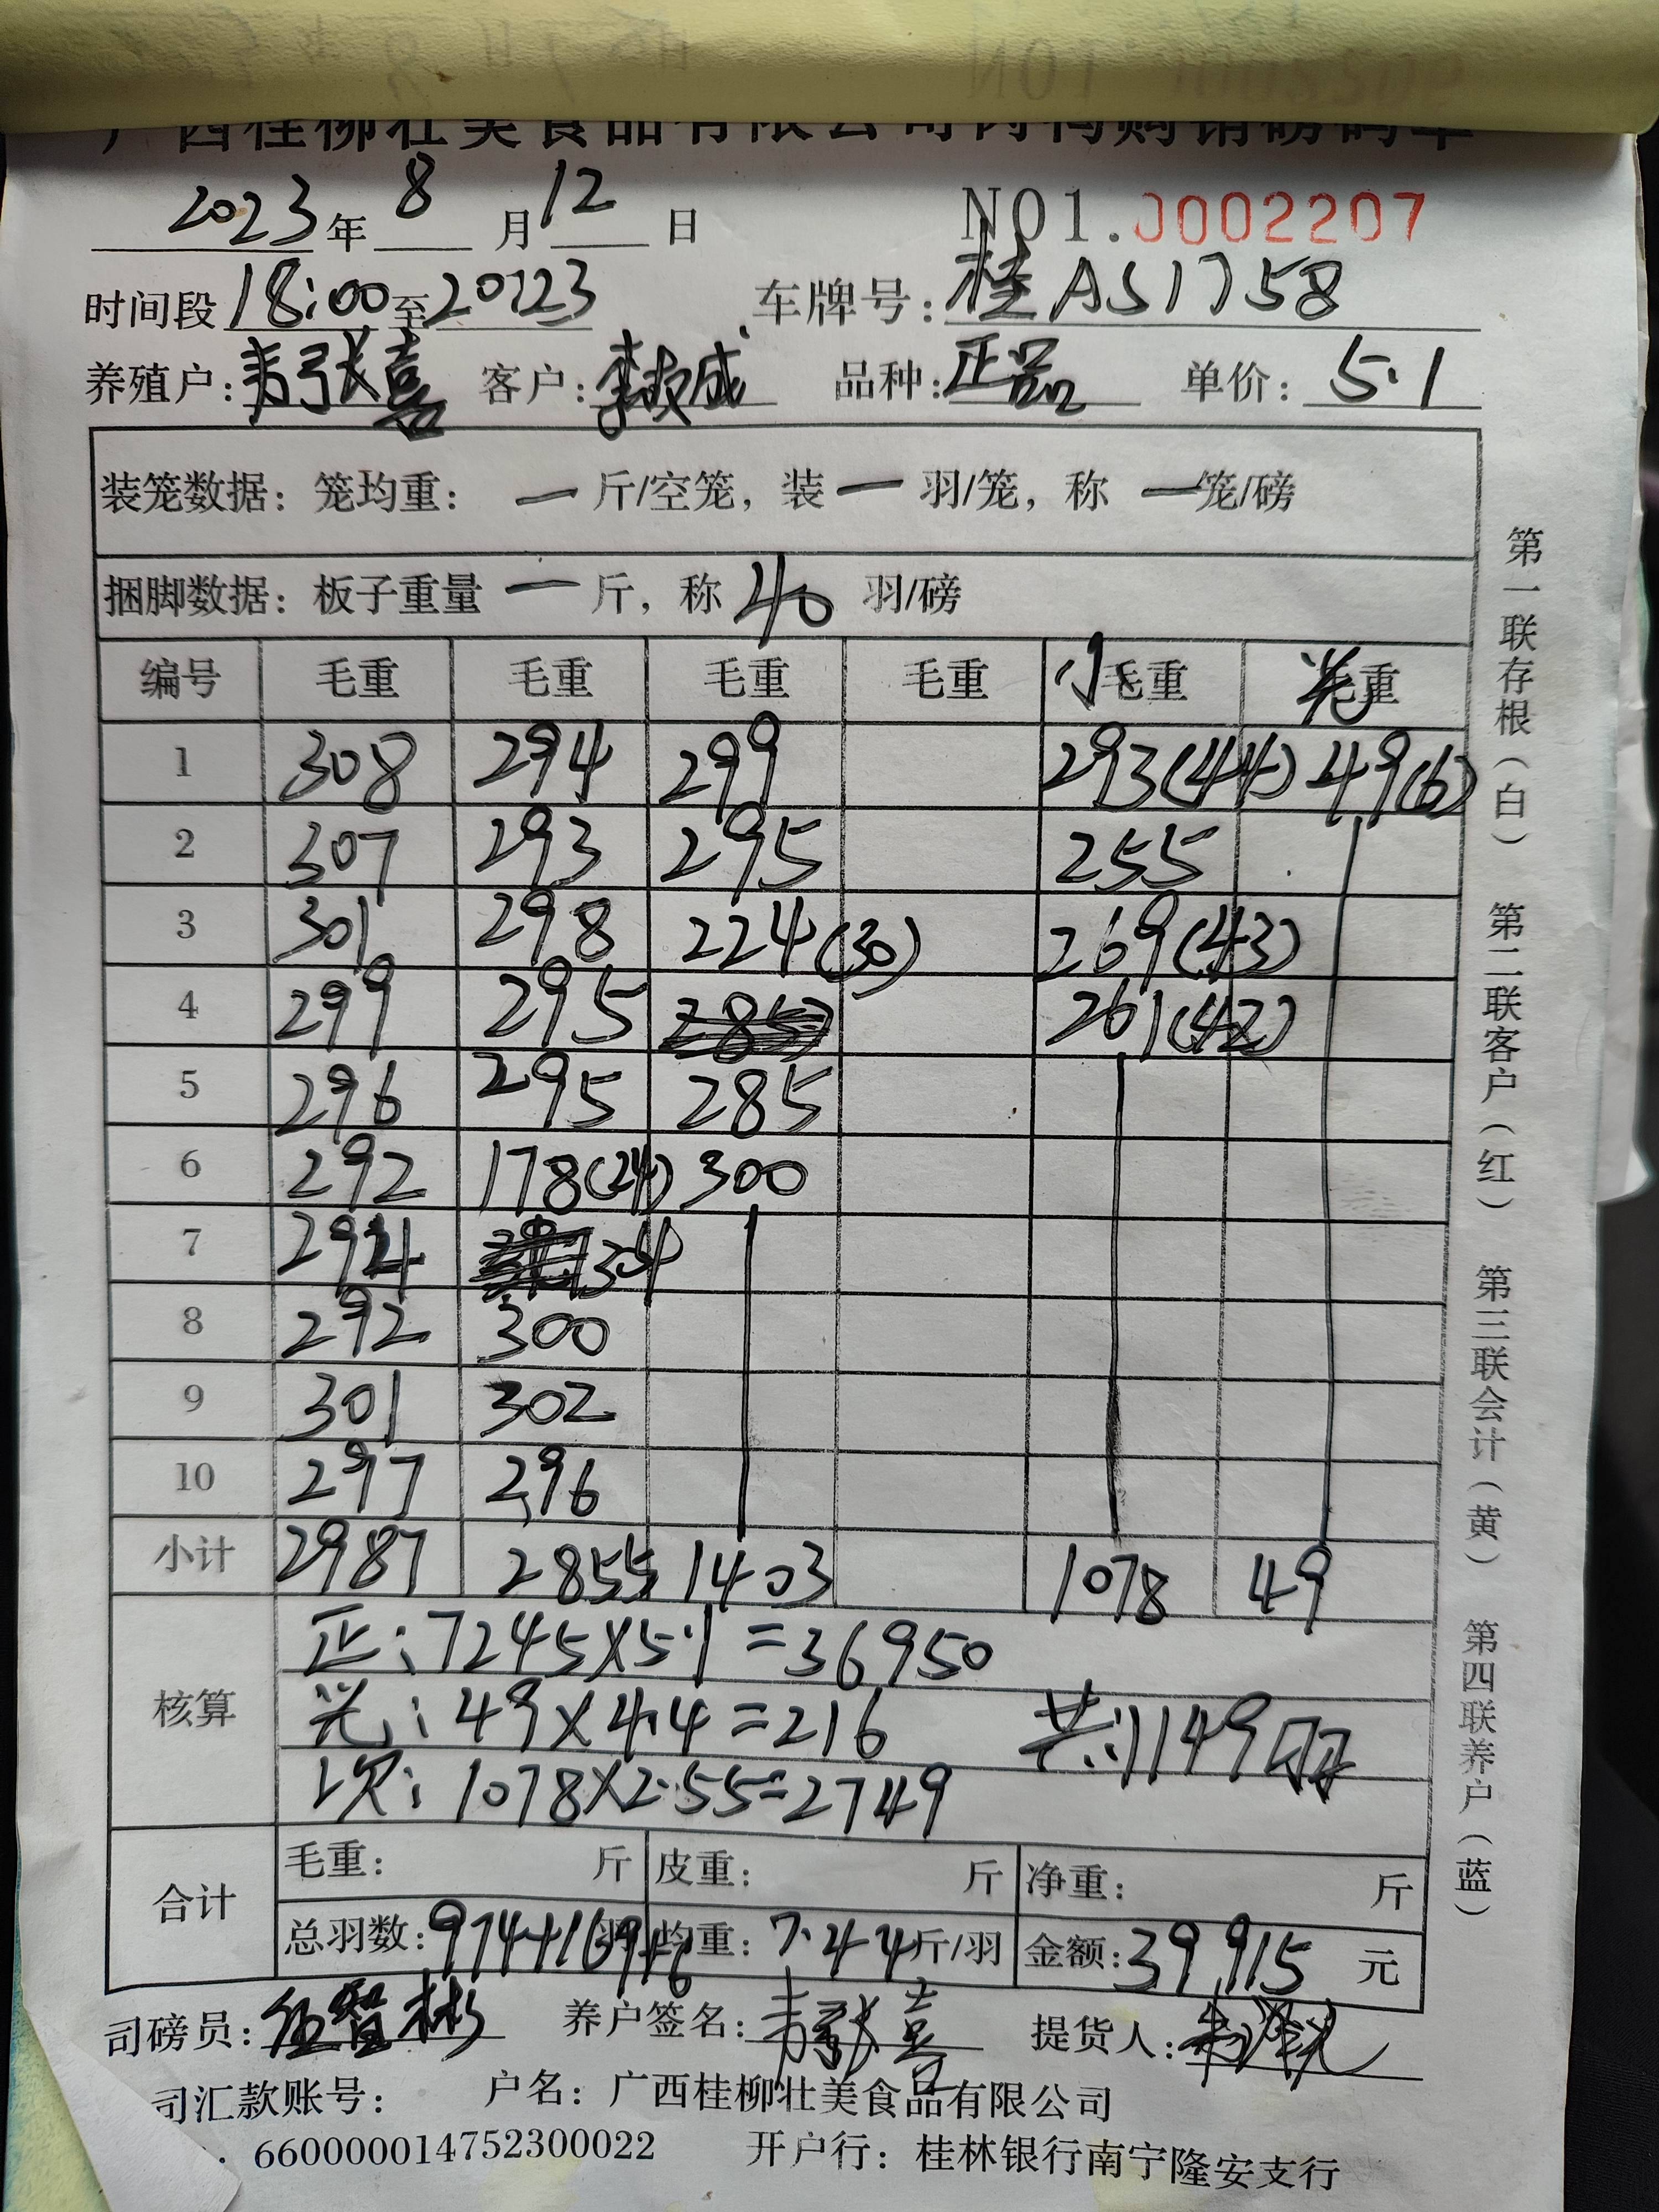 广西桂柳壮美食品有限公司肉鸭购销磅码单
2023年 8 月 12 日 NO1.0002207
时间段 18:00 至 20:23 车牌号: 桂AS1758
养殖户: 韦张喜 客户: 李成 品种: 正品 单价: 5.1
装笼数据: 笼均重: 一 斤/空笼, 装 一 羽/笼, 称 一 笼/磅
捆脚数据: 板子重量 一 斤, 称 40 羽/磅
编号 毛重 毛重 毛重 毛重 小毛重 光毛重
1 308 294 299 293(44) 49(6)
2 307 293 295 255
3 301 298 224(30) 269(43)
4 299 295 285 261(42)
5 296 295 285
6 292 178(24) 300
7 294 304
8 292 300
9 301 302
10 297 296
小计 2987 2855 1403 1078 49
核算 正:7245×5.1=36950
光:49×4.4=216 共:1149羽
次:1078×2.55=2749
合计 毛重: 斤 皮重: 斤 净重: 斤
总羽数: 974+169+6 羽 均重: 7.44 斤/羽 金额: 39,915 元
司磅员: 伍智彬 养户签名: 韦张喜 提货人:
司汇款账号: 户名: 广西桂柳壮美食品有限公司
660000014752300022 开户行: 桂林银行南宁隆安支行
第一联存根(白) 第二联客户(红) 第三联会计(黄) 第四联养户(蓝)